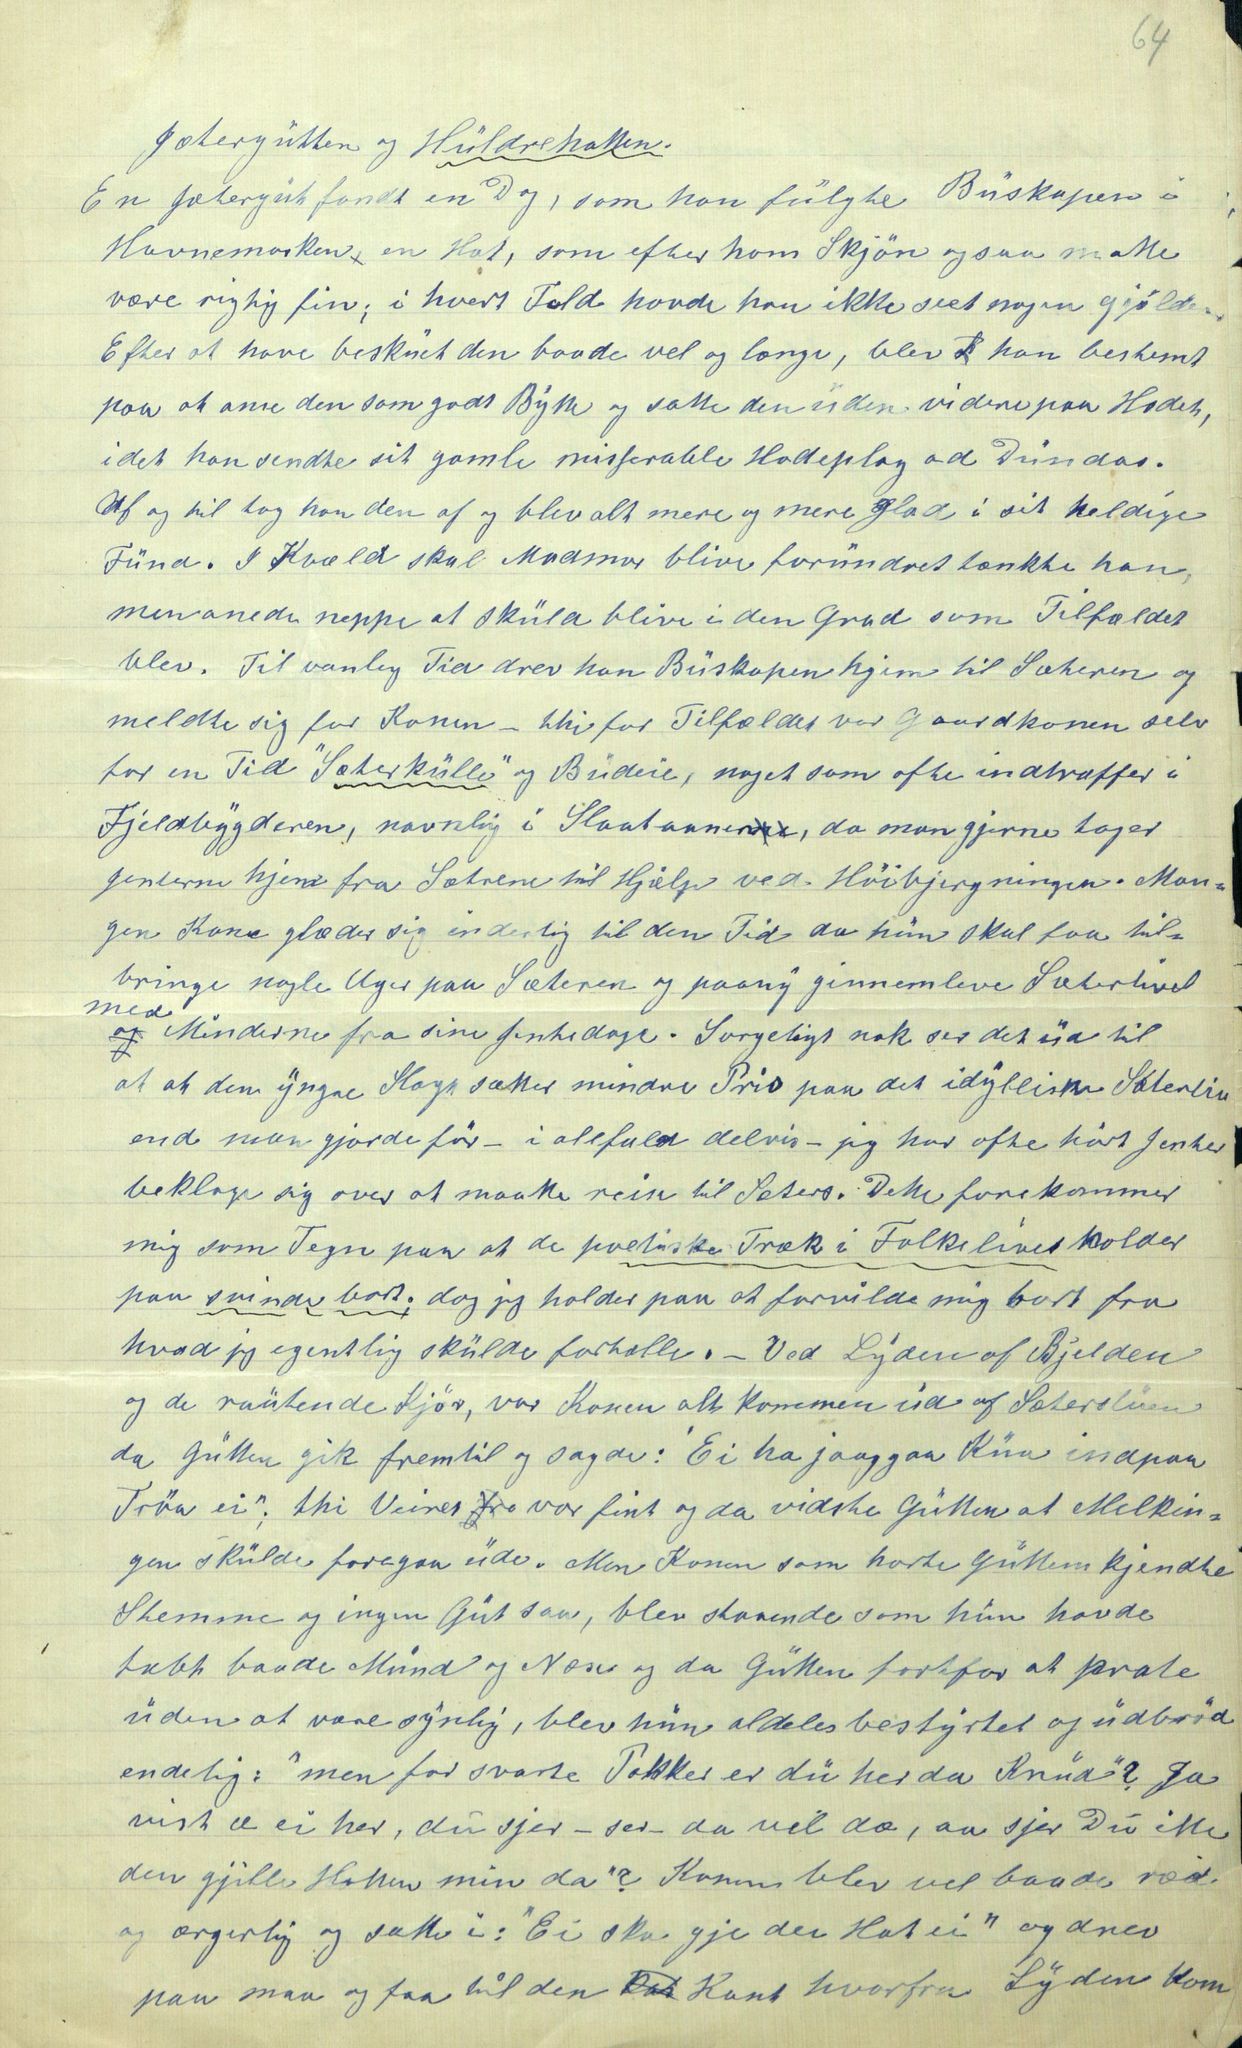 64
Jætergutten og Huldrehatten.
En Jætergut fandt en Dag, som han fulgte Buskapen i
Havnemarken, en Hat, som efter hans Skjön ogsaa matte
være rigtig fin; i hvert Fald havde han ikke seet nogen gjildere.
Efter at have beskuet den baade vel og længe, blev han bestemt
paa at anse den som godt Bytte og satte den uden videre paa Hodet,
idet han sendte sit gamle misserable Hodeplag ad Dundas.
Af og til tog han den af og blev alt mere og mere glad i sit heldige
Fund. I Kvæld skal Madmor blive forundret tænkte han,
men anede neppe at skuld blive i den Grad som Tilfældet
blev. Til vanlig Tid drev han Buskapen hjem til Sæteren og
meldte sig for Konen – thi for Tilfældet var Gaardkonen selv
for en Tid "Sæterkulle" og Budeie, noget som ofte indtræffer i
Fjeldbygderen, navnlig i Slaataanen, da man gjerne tager
Jenterne hjem fra Sætrene til Hjælp ved Höibjergningen. Man-
gen Kone glæder sig inderlig til den Tid da hun skal faa til-
bringe nogle Uger paa Sæteren og paany gjennemleve Sæterlivet
med
og Minderne fra sine Jentedage. Sorgeligt nok ser det ud til
at at den yngre Slægt sætter mindre Pris paa det idylliske Sæterliv
end man gjorde för – i allfald delvis – jeg har ofte hört Jenter
beklage sig over at maatte reise til Sæters. Dette forekommer
mig som Tegn paa at de poetiske Træk i Folkelivet holder
paa svinde bort; dog jeg holder paa at forvilde mig bort fra
hvad jeg egentlig skulde fortælle. – Ved Lyden af Bjelden
og de rautende Kjör, var Konen alt kommen ud af Sæterstuen
da Gutten gik fremtil og sagde: "Ei ha jaaggaa Kua indpaa
Tröa ei"; thi Veiret fra var fint og da vidste Gutten at Melkin-
gen skulde foregaa ude. Men Konen som hörte Guttens kjendte
Stemme og ingen Gut saa, blev staaende som hun havde
tabt baade Mund og Næse og da Gutten fortfor at prate
uden at være synlig, blev hun aldeles bestyrtet og udbröd
endelig: "men for svarte Pokker er du her da Knud"? Ja
vist æ ei her, du sjer – ser – da vel da, aa sjer Du ikke
den gjille Hatten min da"? Konen blev vel baade ræd
og ærgerlig og satte i: "Ei ska gje dei Hat ei" og drev
paa maa og faa til den Kant hvorfra Lyden kom